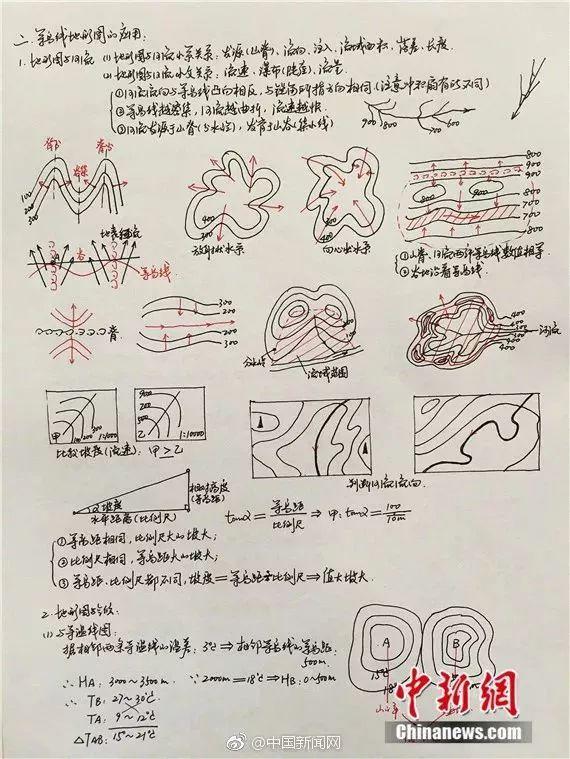 二、等高线地形图的应用:
1. 地形图与河流 (1) 地形图与河流水系关系:发源(山脊)、流向、注入、流域面积、落差、长度.
(2) 地形图与河流水文关系:流速、瀑布(陡崖)、流量
①河流流向与等高线凸向相反,与锐角所指方向相同(注意冲积扇有所不同)
②等高线越密集,河流越曲折,流速越快.
③河流发源于山脊(分水岭),发育于山谷(集水线)
900 800 700 600
100
200
300
放射状水系
400
300
向心状水系
800
900
900
800
700
700
800
①山脊、河流两侧等高线数值相等
②谷地沿着等高线
等高线
谷
脊
300
200
200
300
分水岭
流域范围
河流
甲
100 200 300
1:1000
900
乙
1:10000
比较坡度(流速):甲>乙
判断河流流向.
相对高度
(等高距)
α坡度
水平距离(比例尺)
tanα=等高距/比例尺⇒甲:tanα=100/10m
①等高距相同,比例尺大的坡大;
②比例尺相同,等高距大的坡大;
③等高距、比例尺都不同,坡度=等高距至比例尺⇒值大坡大.
2. 地形图与气候:
(1) 与等温线图:
据相邻两条等温线的温差:3℃⇒相邻等高线的等高距:
500m.
∴HA:3000~3500m. ∵2000m=18℃⇒HB:0~500m
∴TB:27~30℃
TA:9~12℃
△TAB:15~21℃
A
B
15℃
18℃
中新网
Chinanews.com
@中国新闻网